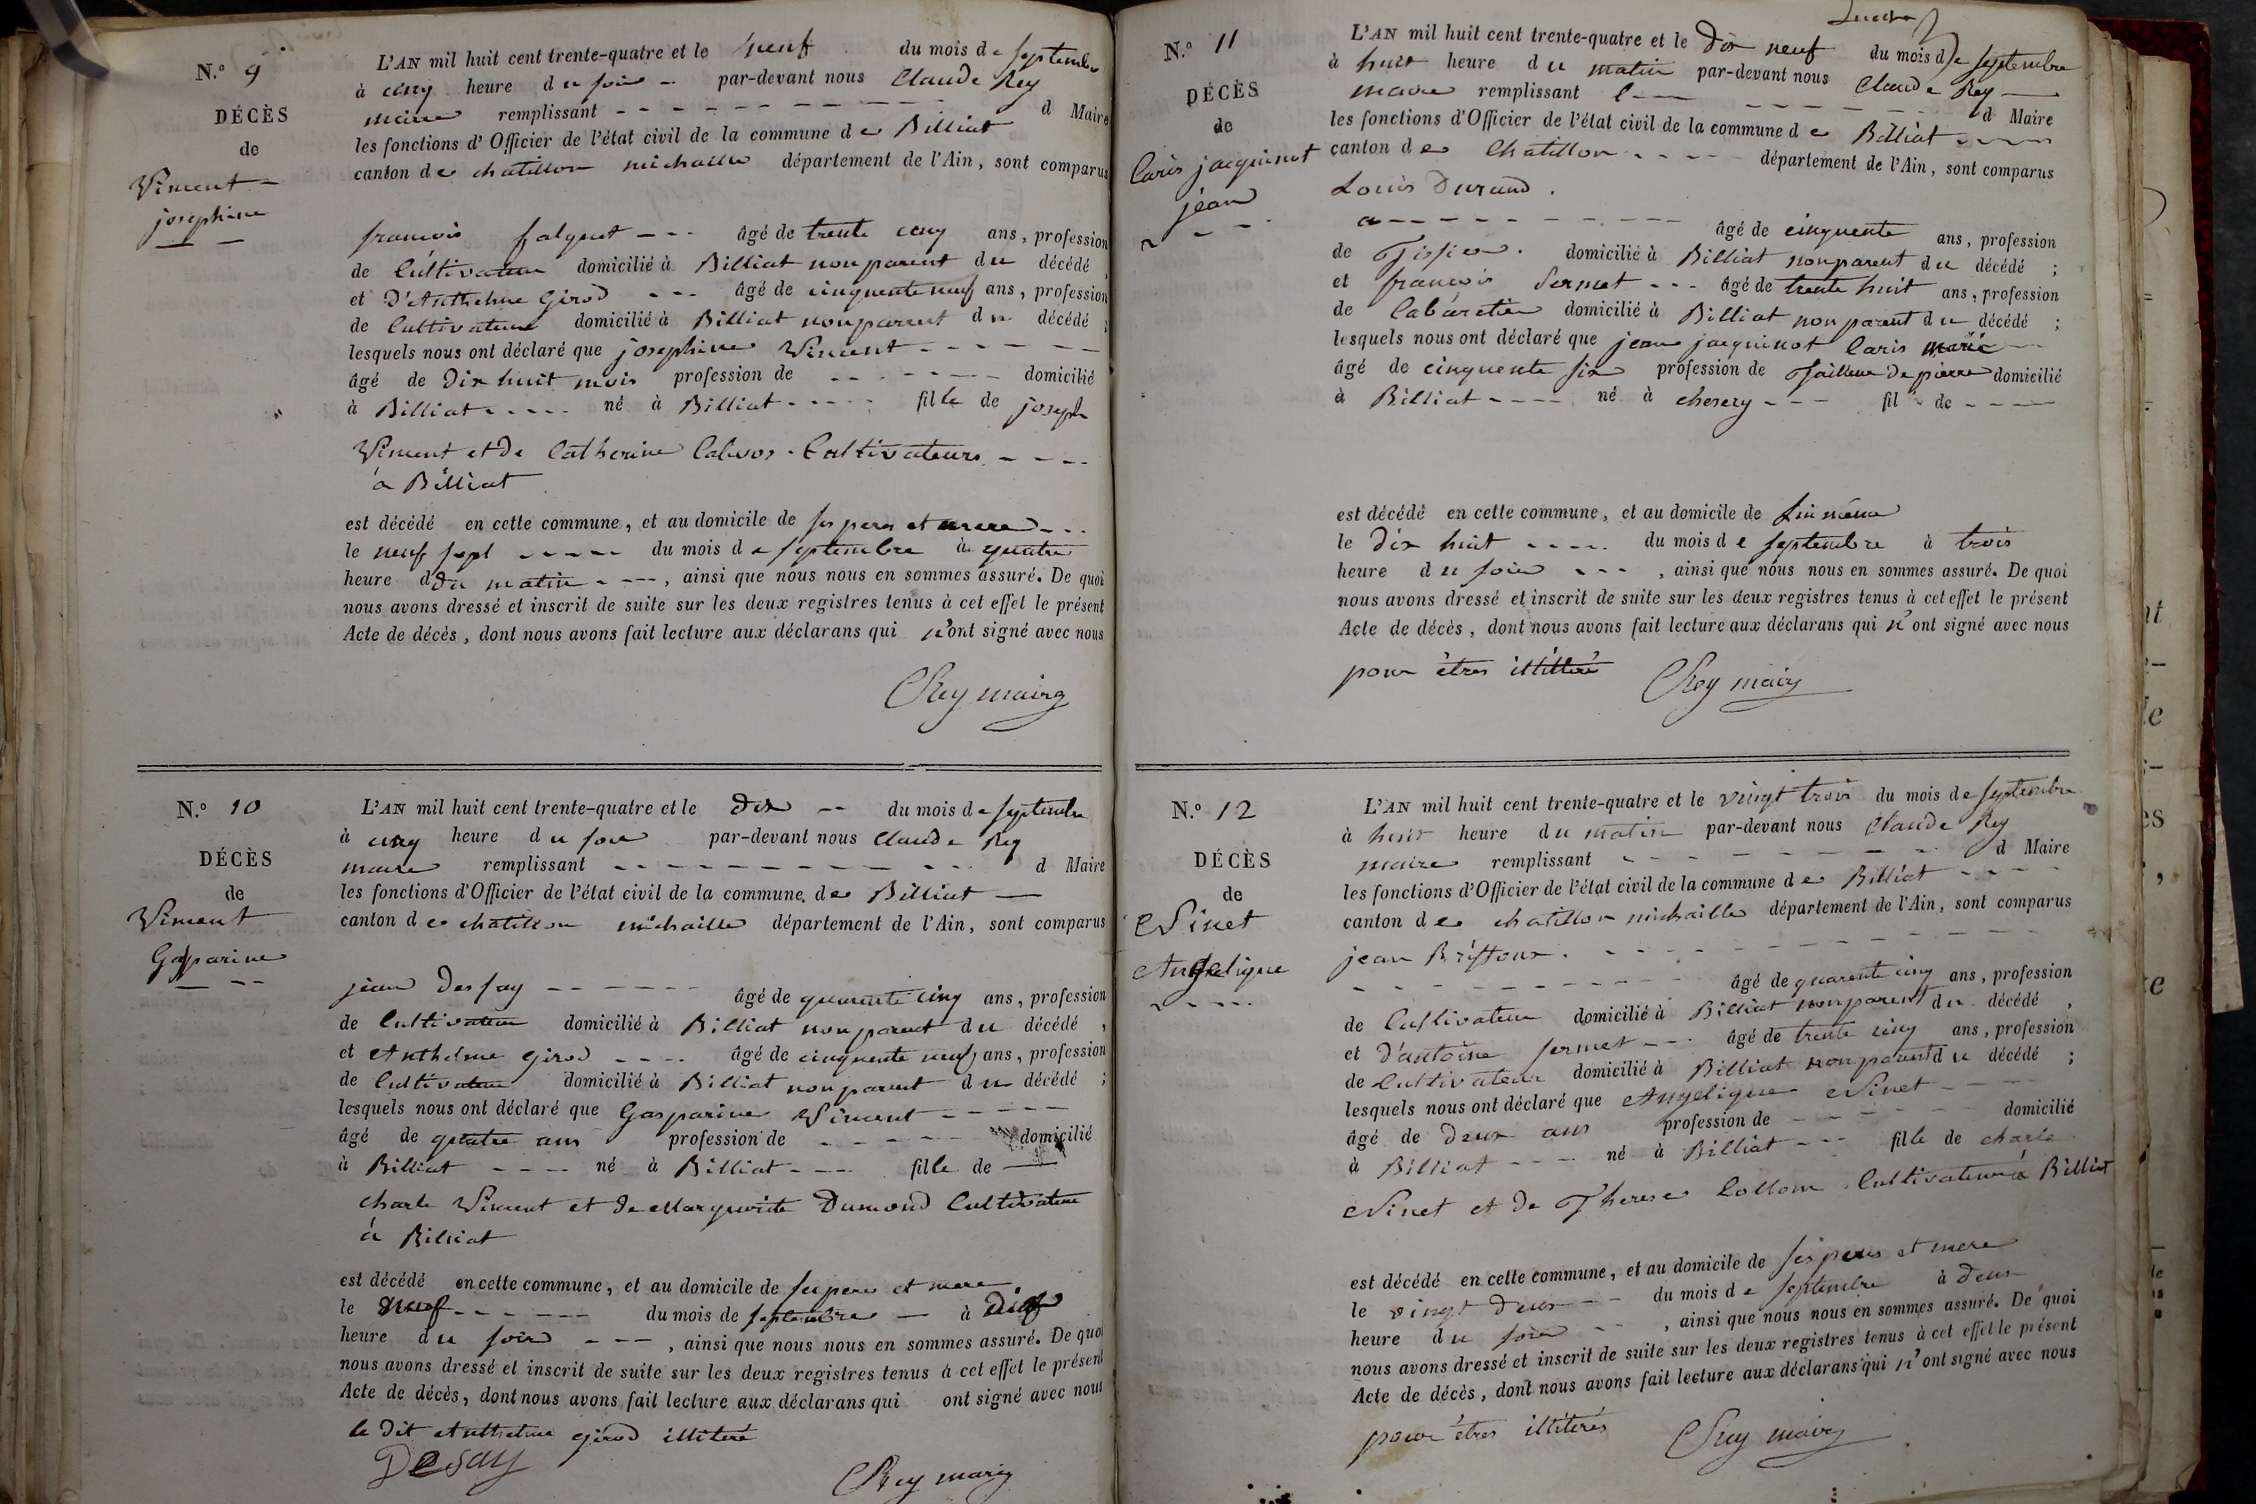 N.° 9
DÉCÈS
de
Vincent
josephine
L'AN mil huit cent trente-quatre et le neuf du mois de septembre
à cinq heure du soir par-devant nous Claude Rey
maire remplissant d Maire
les fonctions d'Officier de l'état civil de la commune de Billiat
canton de chatillon michaille département de l'Ain, sont comparus
francois falquet âgé de trente cinq ans, profession
de Cultivateur domicilié à Billiat non parent du décédé ,
et D'Anthelme Girod âgé de cinquente neuf ans, profession
de Cultivateur domicilié à Billiat non parent du décédé ;
lesquels nous ont déclaré que josephine Vincent
âgé de Dix huit mois profession de domicilié
à Billiat né à Billiat fille de joseph
Vincent et de Catherine Cultivateurs
à Billiat
est décédé en cette commune, et au domicile de ses peres et mere
le neuf sept du mois de septembre à quatre
heure d du matin , ainsi que nous nous en sommes assuré. De quoi
nous avons dressé et inscrit de suite sur les deux registres tenus à cet effet le présent
Acte de décès, dont nous avons fait lecture aux déclarans qui n'ont signé avec nous
CRey maire
N.° 10
DÉCÈS
de
Vincent
Gasparine
L'AN mil huit cent trente-quatre et le dix du mois de septembre
à cinq heure du soir par-devant nous Claude Rey
maire remplissant d Maire
les fonctions d'Officier de l'état civil de la commune de Billiat
canton de chatillon michaille département de l'Ain, sont comparus
jean Dessay âgé de quarente cinq ans, profession
de Cultivateur domicilié à Billiat non parent du décédé ,
et Anthelme Girod âgé de cinquente neuf ans, profession
de Cultivateur domicilié à Billiat non parent du décédé ;
lesquels nous ont déclaré que Gasparine Vincent
âgé de quatre ans profession de domicilié
à Billiat né à Billiat fille de
charle Vincent et de Marguerite Dumond Cultivateur
à Billiat
est décédé en cette commune, et au domicile de ses pere et mere
le neuf du mois de septembre à
heure du soir , ainsi que nous nous en sommes assuré. De quoi
nous avons dressé et inscrit de suite sur les deux registres tenus à cet effet le présent
Acte de décès, dont nous avons fait lecture aux déclarans qui ont signé avec nous
le dit Anthelme girod illiteré
Desay
CRey maire
N.° 11
DÉCÈS
de
Caris jacquinot
jean
L'AN mil huit cent trente-quatre et le dix neuf du mois de septembre
à huit heure du matin par-devant nous Claude Rey
maire remplissant d Maire
les fonctions d'Officier de l'état civil de la commune de Billiat
canton de Chatillon département de l'Ain, sont comparus
Louis Durand
âgé de cinquente ans, profession
de Tissier domicilié à Billiat non parent du décédé ;
et francois Sermet âgé de trente huit ans, profession
de Cabaretier domicilié à Billiat non parent du décédé ;
lesquels nous ont déclaré que jean jacquinot Caris marié
âgé de cinquente six profession de Tailleur de pierre domicilié
à Billiat né à chesery fil de
est décédé en cette commune, et au domicile de lui même
le dix huit du mois de septembre à trois
heure du soir , ainsi que nous nous en sommes assuré. De quoi
nous avons dressé et inscrit de suite sur les deux registres tenus à cet effet le présent
Acte de décès, dont nous avons fait lecture aux déclarans qui n'ont signé avec nous
pour êtres illitteré CRey maire
N.° 12
DÉCÈS
de
Ninet
Angelique
L'AN mil huit cent trente-quatre et le vingt trois du mois de septembre
à huit heure du matin par-devant nous Claude Rey
maire remplissant d Maire
les fonctions d'Officier de l'état civil de la commune de Billiat
canton de chatillon michaille département de l'Ain, sont comparus
jean
âgé de quarente cinq ans, profession
de Cultivateur domicilié à Billiat non parent du décédé ,
et D'antoine sermet âgé de trente cinq ans, profession
de Cultivateur domicilié à Billiat non parent du décédé ;
lesquels nous ont déclaré que Angelique Ninet
âgé de Deux ans profession de domicilié
à Billiat né à Billiat fille de charle
Ninet et de Therese Collom Cultivateur à Billiat
est décédé en cette commune, et au domicile de ses peres et mere
le vingt Deux du mois de septembre à deux
heure du soir , ainsi que nous nous en sommes assuré. De quoi
nous avons dressé et inscrit de suite sur les deux registres tenus à cet effet le présent
Acte de décès, dont nous avons fait lecture aux déclarans qui n'ont signé avec nous
pour êtres illiterés CRey maire